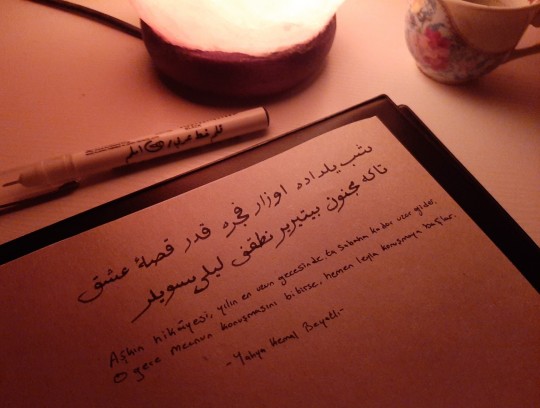 شب یلداده اوزار فجره قدر قصهٔ عشق
تا که مجنون بیتیریر نطقنی لیلی سویلر
Aşkın hikâyesi, yılın en uzun gecesinde, ta sabaha kadar uzar gider.
O gece mecnun konuşmasını bitirse, hemen leyla konuşmaya başlar.
- Yahya Kemal Beyatlı -